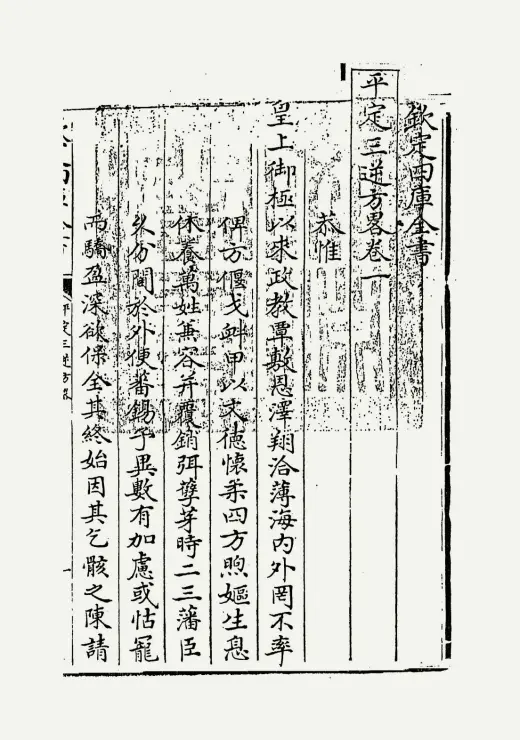 欽定四庫全書
平定三逆方畧卷一
恭惟
皇上御極以來政教覃敷恩澤翔洽薄海內外罔不率
俾方偃戈衅甲以文徳懷柔四方煦嫗生息
休養萬姓兼容并覆銷弭孽芽時二三藩臣
久份閫於外便蕃錫予異數有加慮或怙寵
而驕盈深欲保全其終始因其乞骸之陳請
平定三逆方畧
一